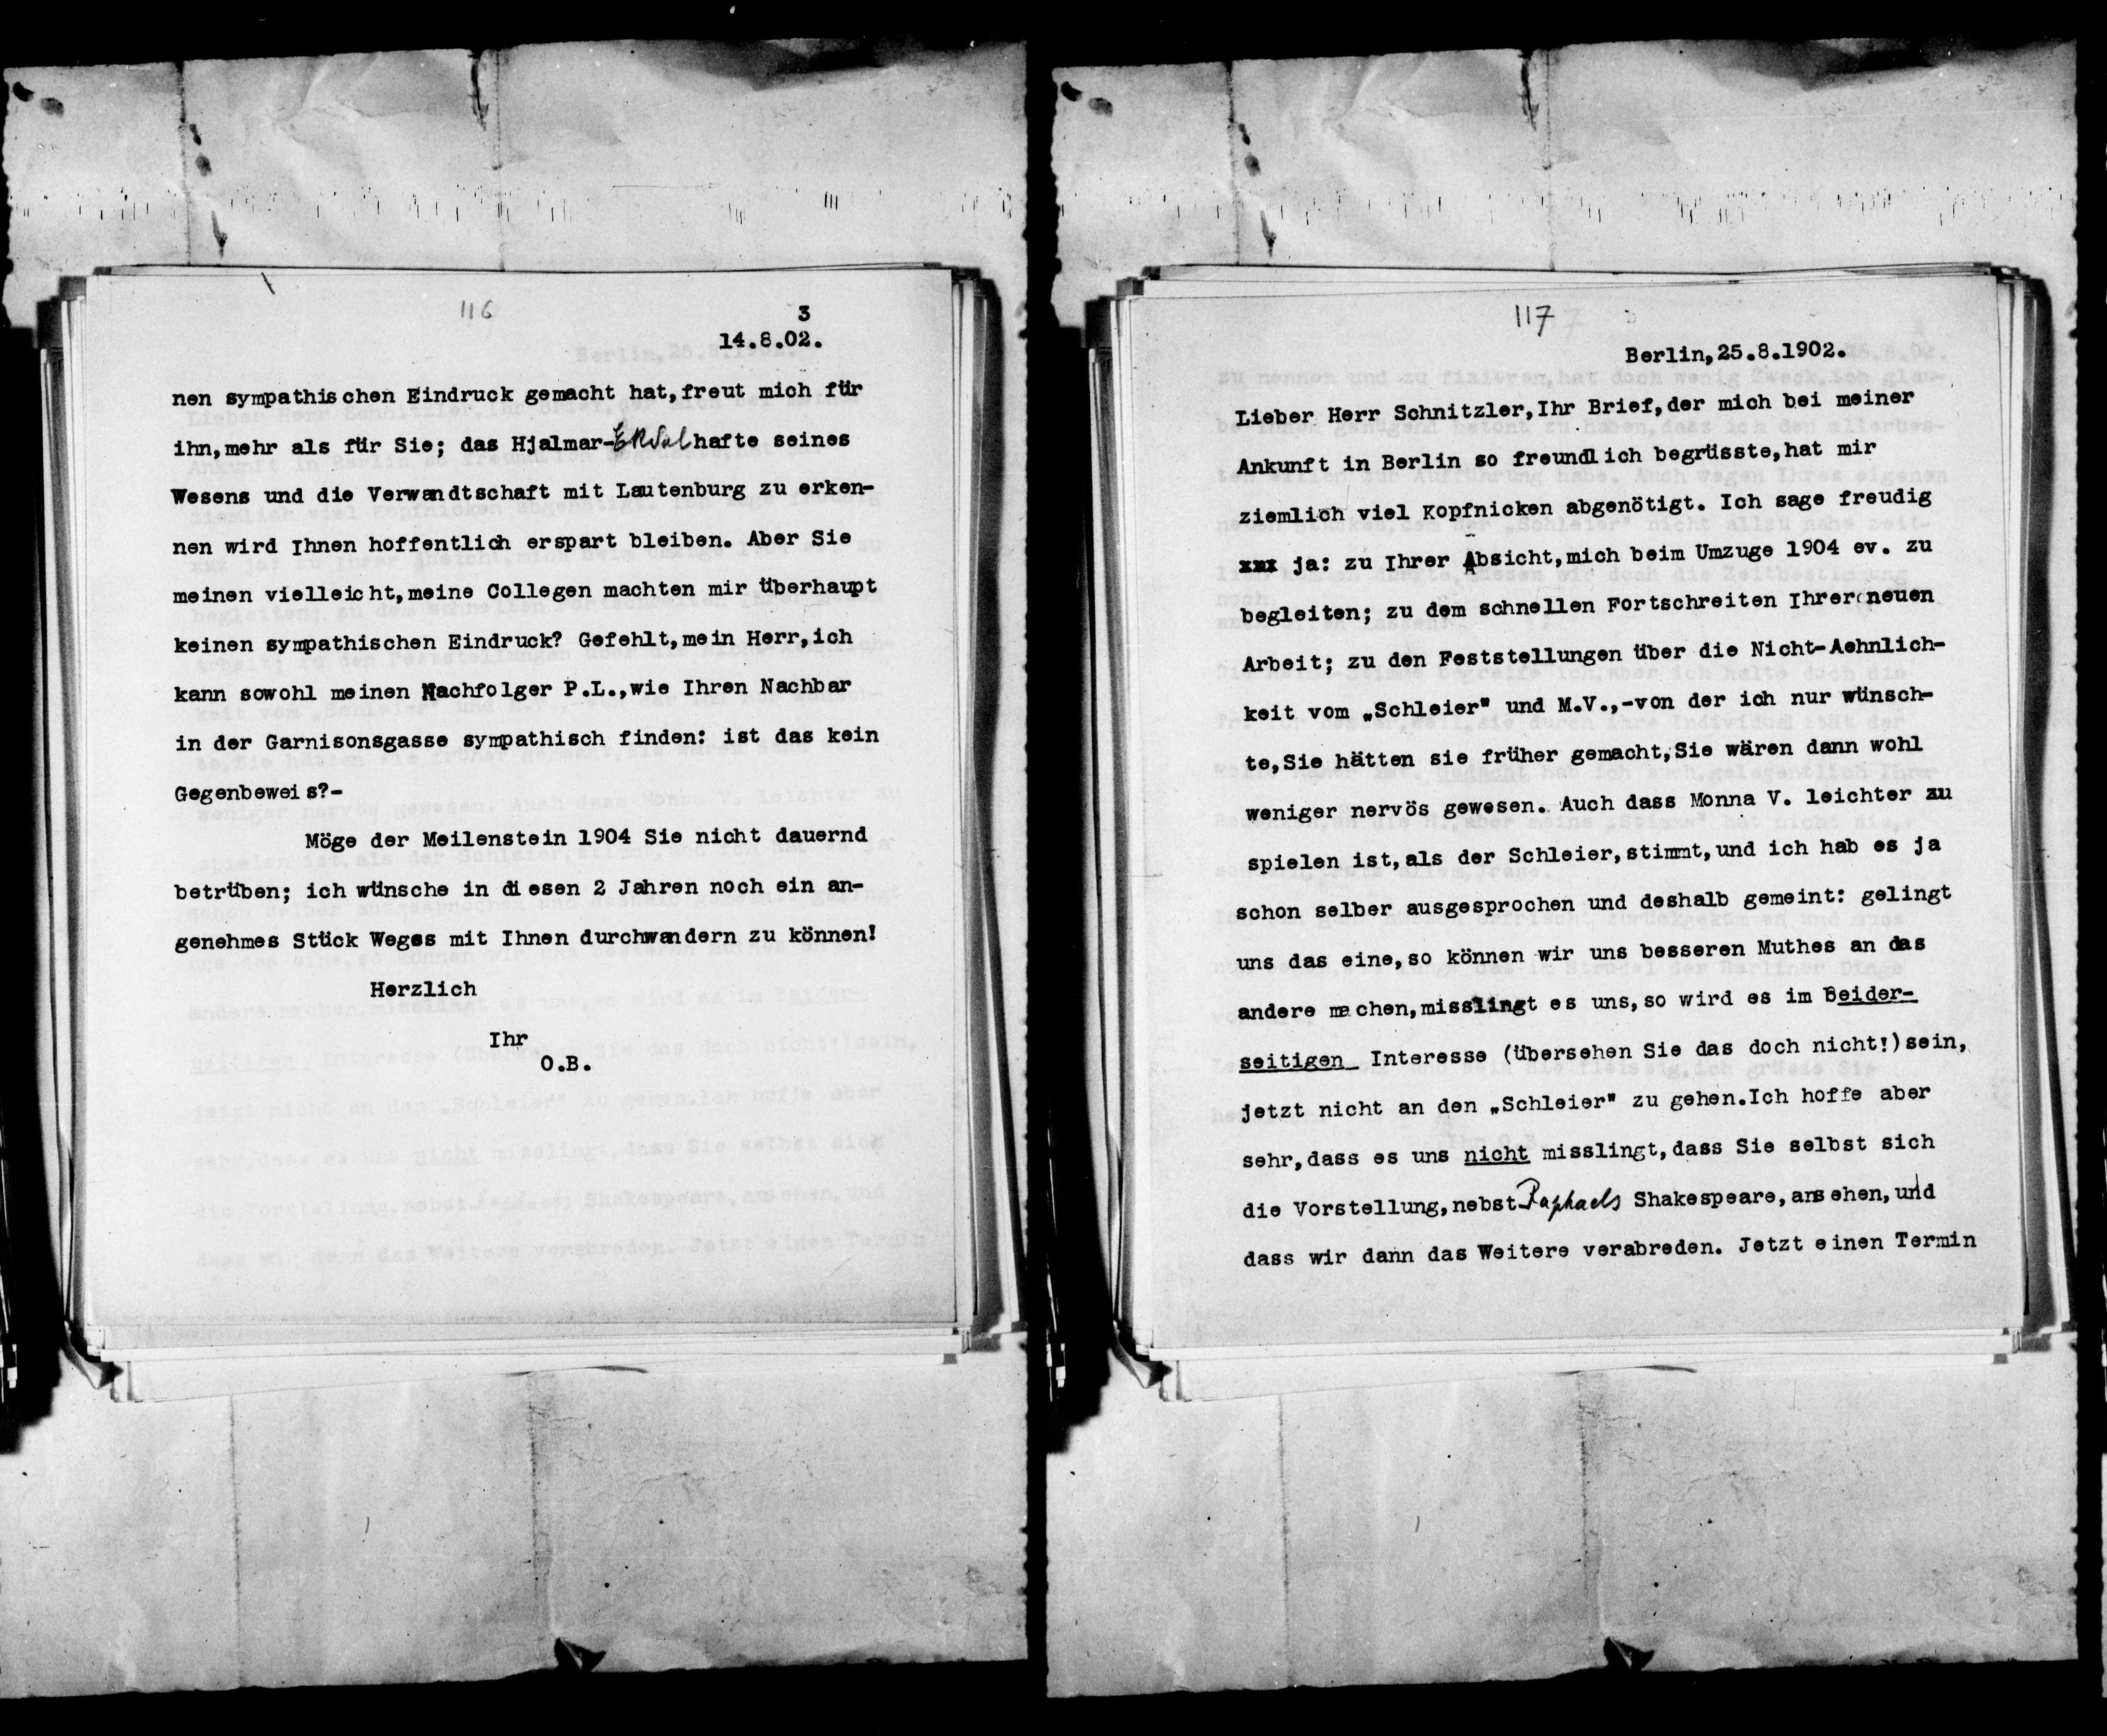 116
3
14.8.02.
nen sympathischen Eindruck gemacht hat, freut mich für
ihn, mehr als für Sie; das Hjalmar-Ekdalhafte seines
Wesens und die Verwandtschaft mit Lautenburg zu erken-
nen wird Ihnen hoffentlich erspart bleiben. Aber Sie
meinen vielleicht, meine Collegen machten mir überhaupt
keinen sympathischen Eindruck? Gefehlt, mein Herr, ich
kann sowohl meinen Nachfolger P.L., wie Ihren Nachbar
in der Garnisonsgasse sympathisch finden: ist das kein
Gegenbeweis?-
Möge der Meilenstein 1904 Sie nicht dauernd
betrüben; ich wünsche in diesen 2 Jahren noch ein an-
genehmes Stück Weges mit Ihnen durchwandern zu können!
Herzlich
Ihr
O.B.
117
Berlin, 25.8.1902.
Lieber Herr Schnitzler, Ihr Brief, der mich bei meiner
Ankunft in Berlin so freundlich begrüsste, hat mir
ziemlich viel Kopfnicken abgenötigt. Ich sage freudig
xxx ja: zu Ihrer Absicht, mich beim Umzuge 1904 ev. zu
begleiten; zu dem schnellen Fortschreiten Ihrer neuen
Arbeit; zu den Feststellungen über die Nicht-Aehnlich-
keit vom „Schleier" und M.V.,-von der ich nur wünsch-
te, Sie hätten sie früher gemacht, Sie wären dann wohl
weniger nervös gewesen. Auch dass Monna V. leichter zu
spielen ist, als der Schleier, stimmt, und ich hab es ja
schon selber ausgesprochen und deshalb gemeint: gelingt
uns das eine, so können wir uns besseren Muthes an das
andere machen, misslingt es uns, so wird es im Beider-
seitigen Interesse (übersehen Sie das doch nicht!) sein,
jetzt nicht an den „Schleier" zu gehen. Ich hoffe aber
sehr, dass es uns nicht misslingt, dass Sie selbst sich
die Vorstellung, nebst Raphaels Shakespeare, ansehen, und
dass wir dann das Weitere verabreden. Jetzt einen Termin